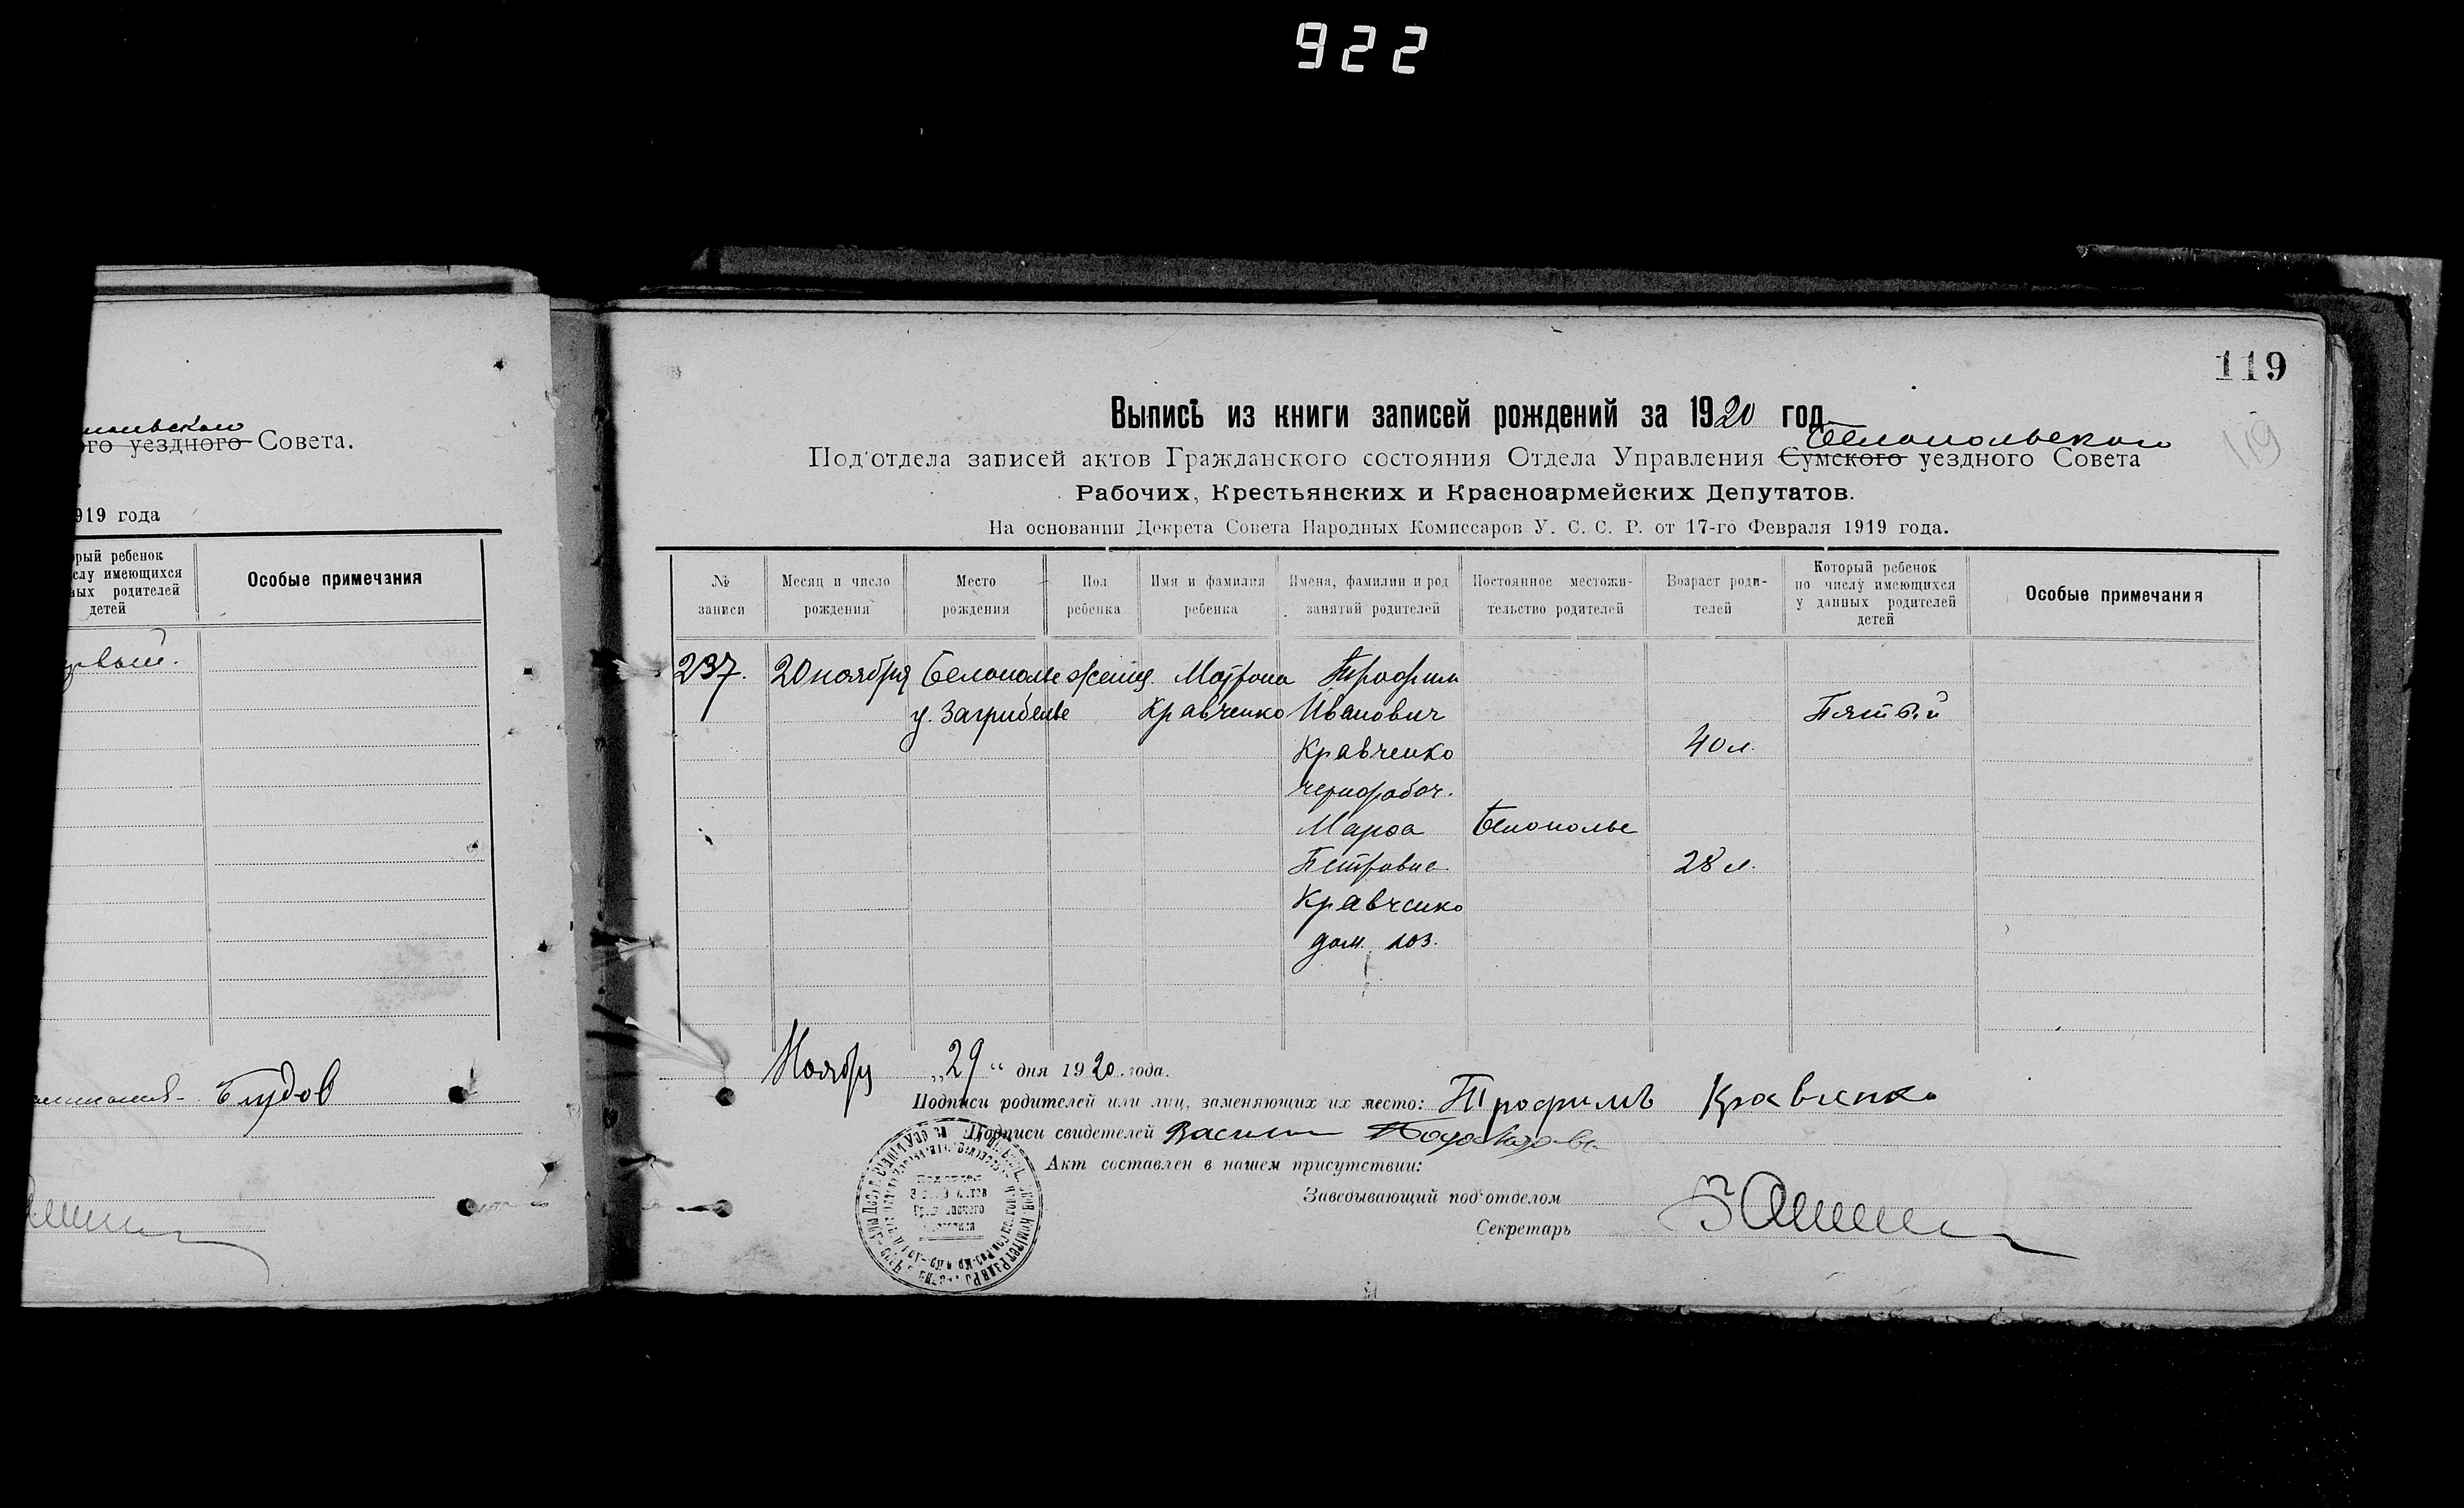 922
польского
ого уездного Совета.
919 года
орый ребенок
слу имеющихся
ных родителей
детей
Особые примечания
ервый.
Блудов
119
119
Выпись из книги записей рождений за 1920 год
Белопольского
Под'отдела записей актов Гражданского состояния Отдела Управления Сумского уездного Совета
Рабочих, Крестьянских и Красноармейских Депутатов.
На основании Декрета Совета Народных Комиссаров У. С. С. Р. от 17-го Февраля 1919 года.
№ записи
Месяц и число рождения
Место рождения
Пол ребенка
Имя и фамилия ребенка
Имена, фамилии и род занятий родителей
Постоянное местожительство родителей
Возраст родителей
Который ребенок по числу имеющихся у данных родителей детей
Особые примечания
237. 20 ноября Белополье женщ. Матрона Трофим
у. Загрибелье Кравченко Иванович Пятый
Кравченко 40 л.
чернорабоч.
Марфа Белополье
Петровна 28 л.
Кравченко
дом. хоз.
Ноября „29“ дня 1920. года.
Подписи родителей или лиц, заменяющих их место: Трофимъ Кравченко
Подписи свидетелей Василий
Акт составлен в нашем присутствии:
Заведывающий под'отделом
Секретарь